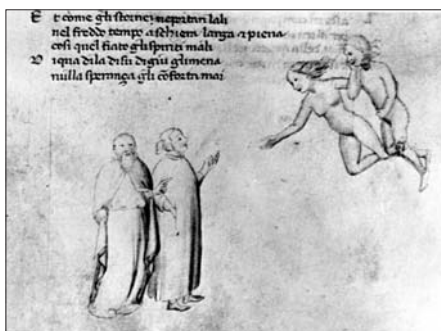 E t come gli stornei ne portan lali
nel freddo tempo a schiera larga et piena
cosi quel fiato gli spiriti mali
D i qua di la di su di giu gli mena
nulla sperança gli conforta mai